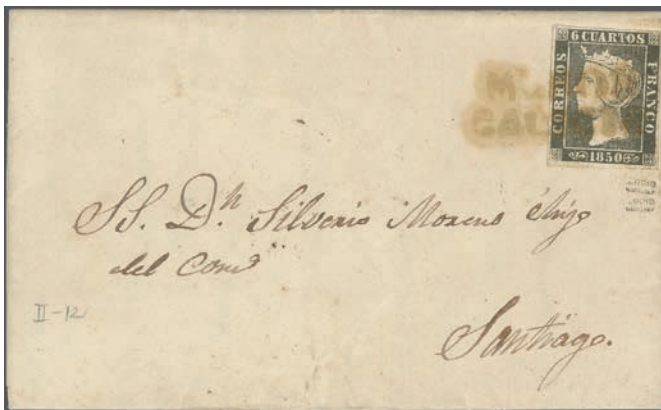 6 CUARTOS
CORREOS
FRANCO
1850
SS. Dn Silverio Moreno é hijo
del Comº
Santiago.
II-12